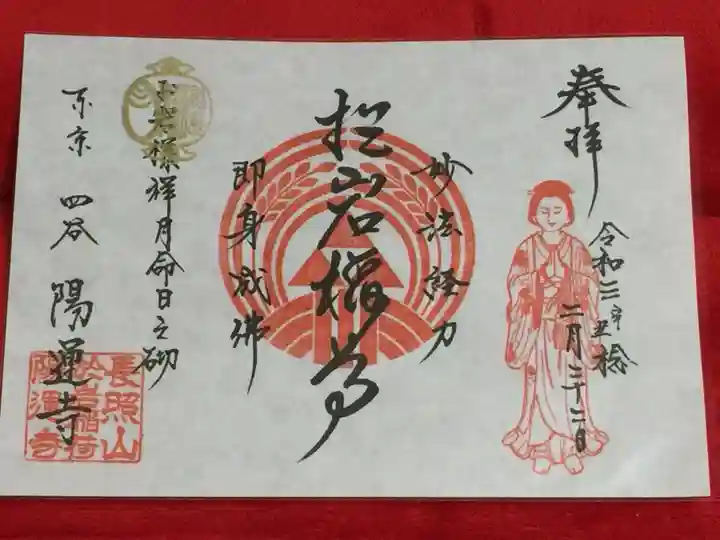 奉拝
令和三年丑稔
二月二十二日
妙法経力
於岩稲荷
即身成佛
お岩様祥月命日之砌
東京 四谷 陽運寺
長照山
於岩稲荷
陽運寺